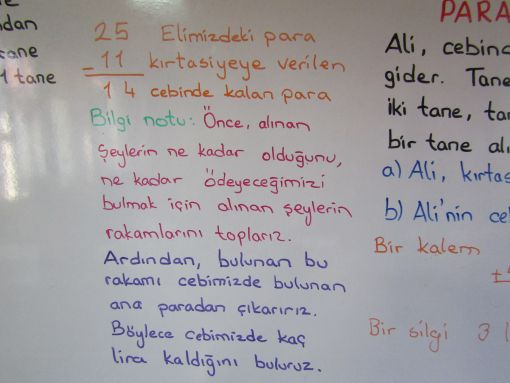 ndan
tane
1 tane
25 Elimizdeki para
- 11 kırtasiyeye verilen
14 cebinde kalan para
Bilgi notu: Önce, alınan
Şeylerin ne kadar olduğunu,
ne kadar ödeyeceğimizi
bulmak için alınan şeylerin
rakamlarını toplarız.
Ardından, bulunan bu
rakamı cebimizde bulunan
ana paradan çıkarırız.
Böylece cebimizde kaç
lira kaldığını buluruz.
PARA
Ali, cebind
gider. Tane
iki tane, ta
bir tane alı
a) Ali, kırtas
b) Ali'nin ce
Bir kalem
Bir silgi 3 l